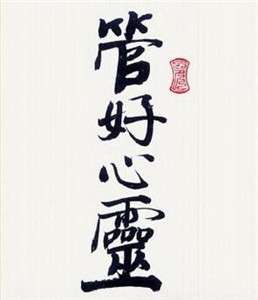 管好心靈